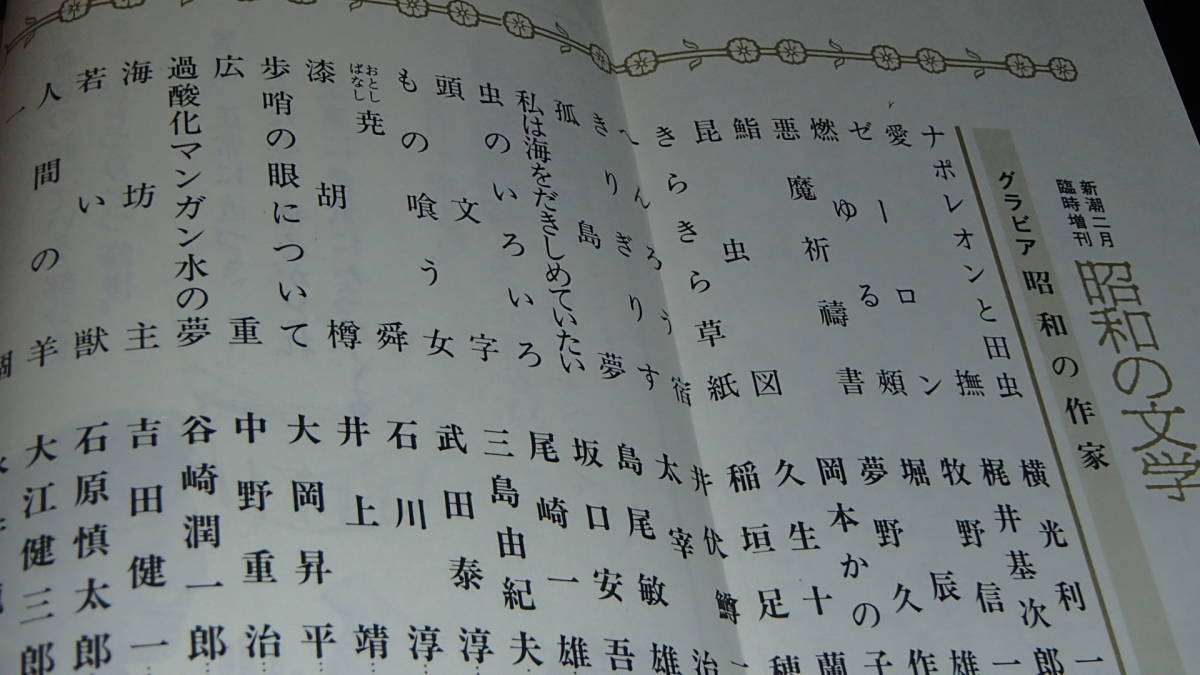 新潮二月
臨時増刊
昭和の文学
グラビア 昭和の作家
ナポレオンと田虫 横光利一
愛撫 梶井基次郎
ゼーロン 牧野信一
燃ゆる頬 堀辰雄
悪魔祈禱書 夢野久作
鮨 岡本かの子
昆虫図 久生十蘭
きらきら草紙 稲垣足穂
へんろう宿 井伏鱒二
きりぎりす 太宰治
孤島夢 島尾敏雄
私は海をだきしめていたい 坂口安吾
虫のいろいろ 尾崎一雄
頭文字 三島由紀夫
もの喰う女 武田泰淳
おとしばなし 堯舜 石川淳
漆胡樽 井上靖
歩哨の眼について 大岡昇平
広重 中野重治
過酸化マンガン水の夢 谷崎潤一郎
海坊主 吉田健一
若い獣 石原慎太郎
人間の羊 大江健三郎
一個